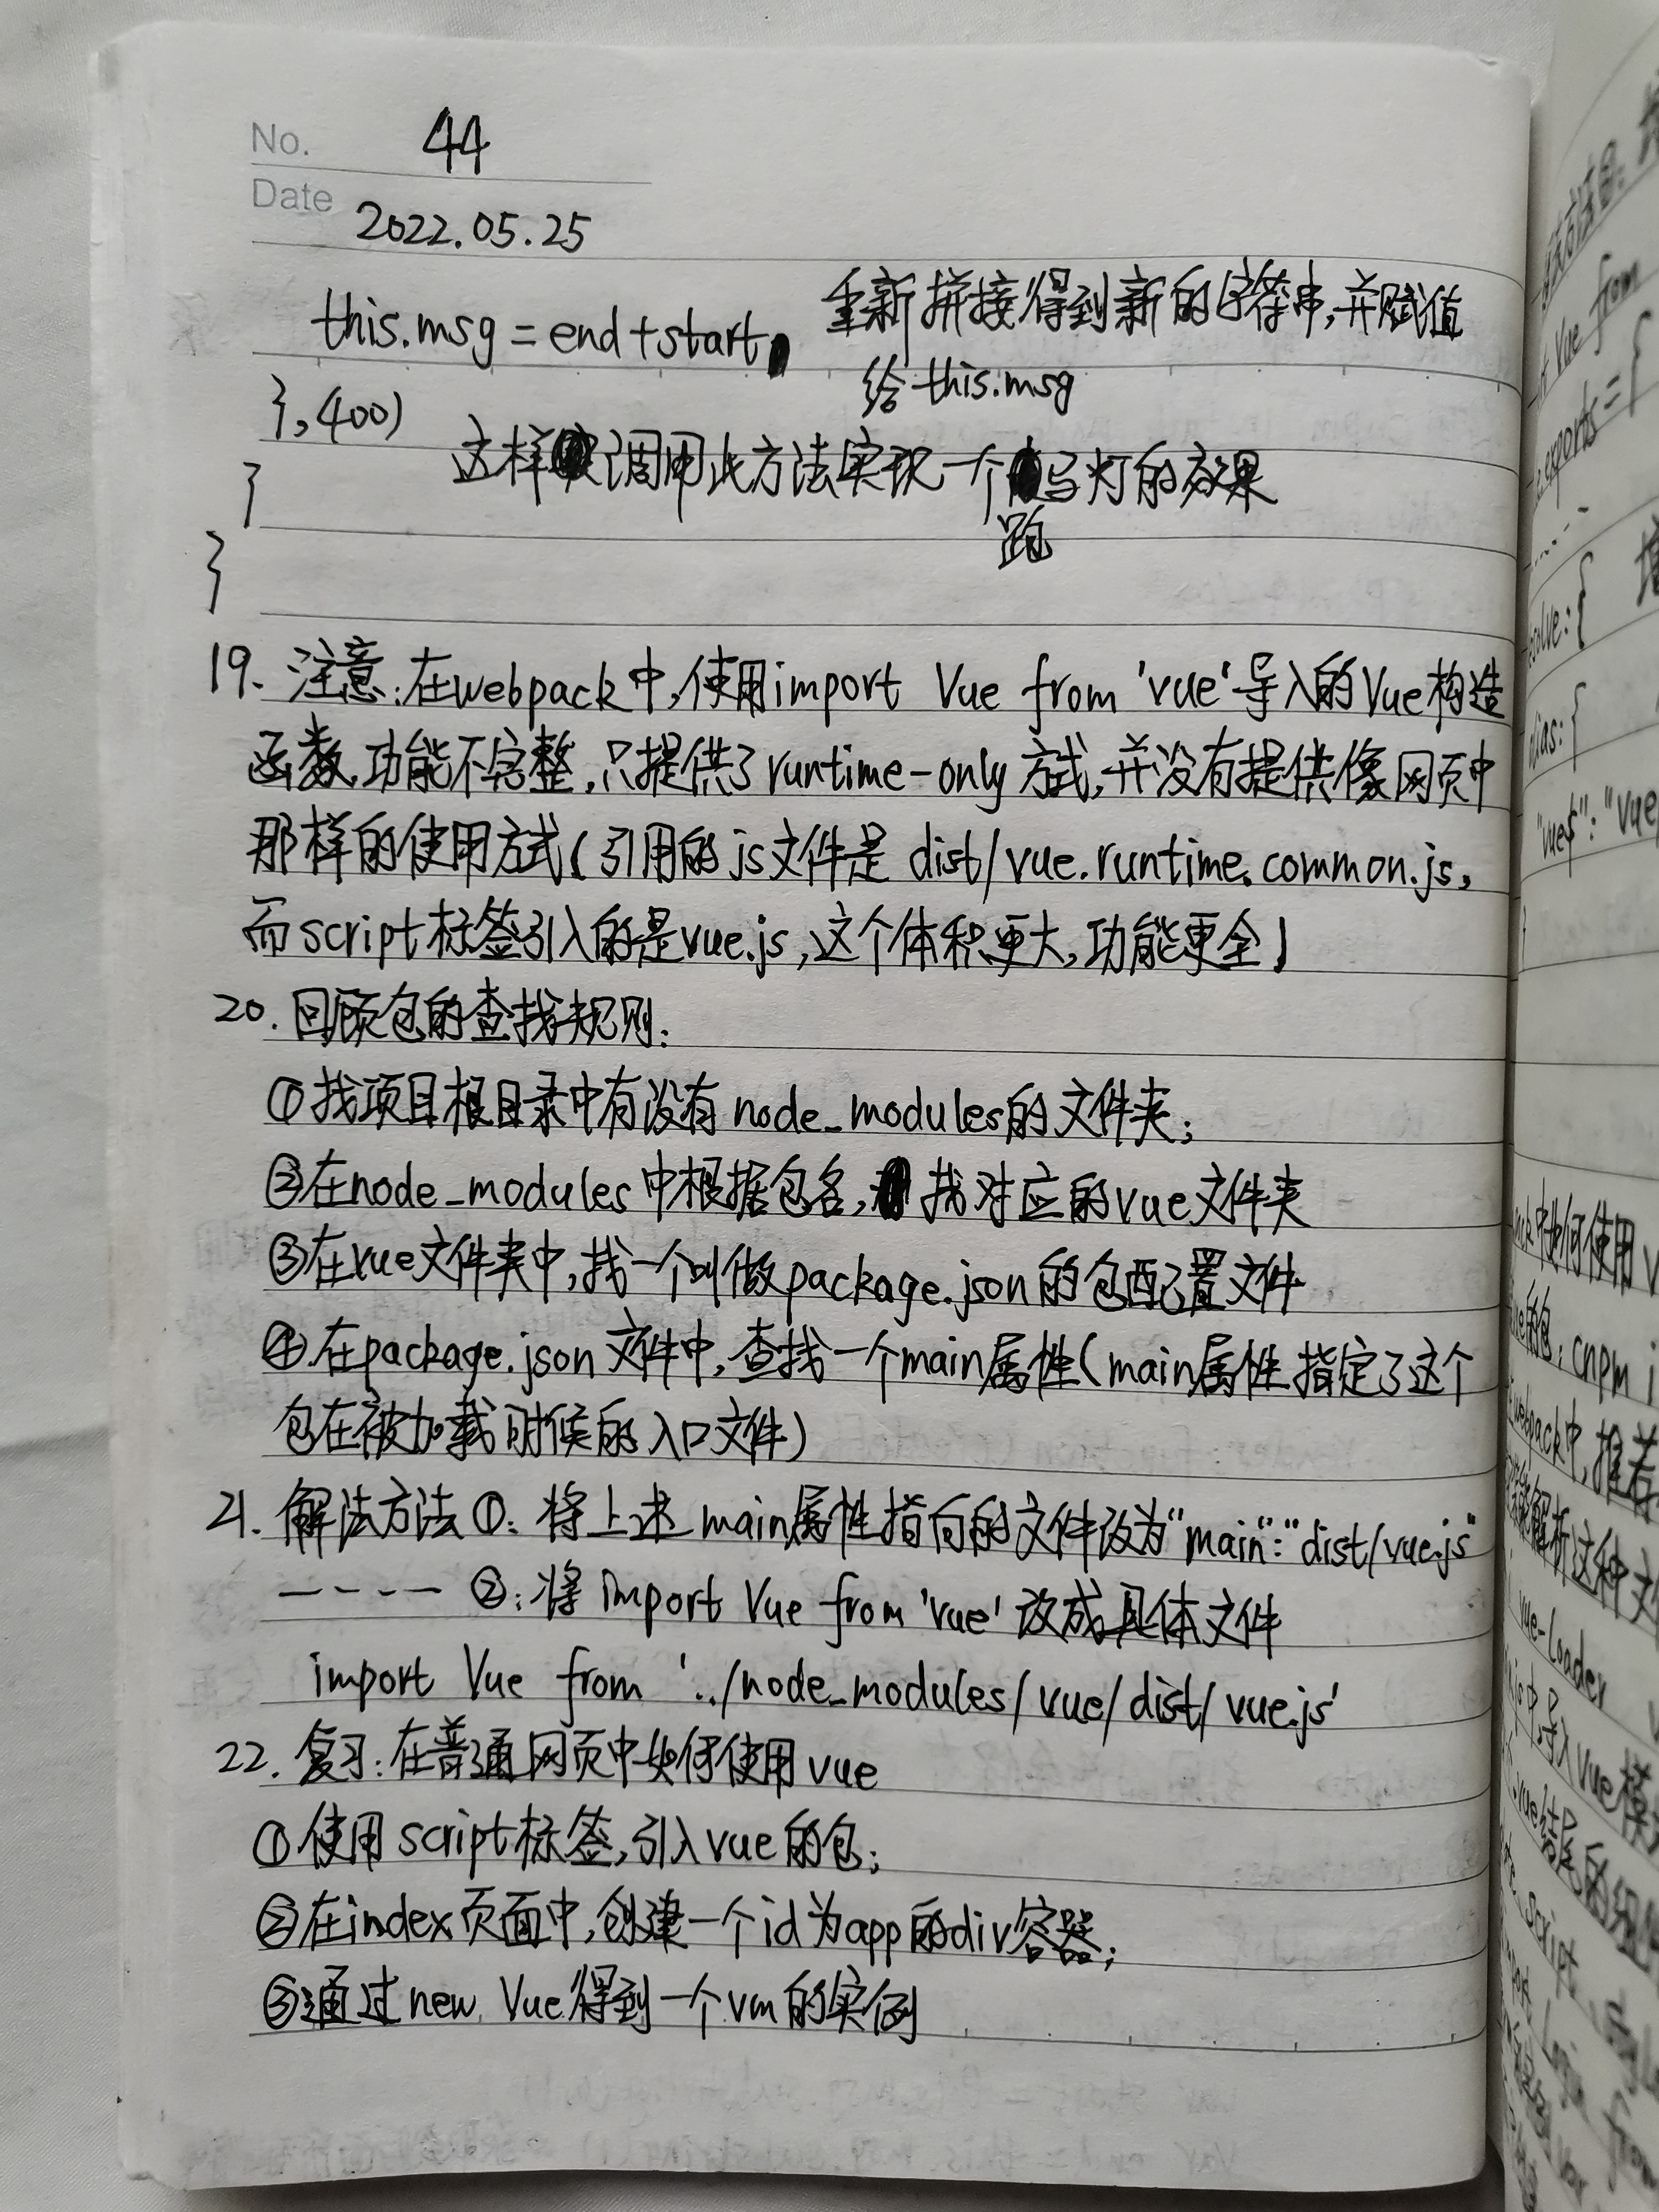 No. 44
Date 2022.05.25
this.msg = end+start, 重新拼接得到新的字符串,并赋值
给this.msg
},400)
这样调用此方法实现一个跑马灯的效果
}
}
19. 注意:在webpack中,使用import Vue from 'vue'导入的Vue构造
函数,功能不完整,只提供了runtime-only方式,并没有提供像网页中
那样的使用方式(引用的js文件是 dist/vue.runtime.common.js,
而script标签引入的是vue.js,这个体积更大,功能更全)
20. 回顾包的查找规则:
①找项目根目录中有没有node_modules的文件夹;
②在node_modules中根据包名,找对应的vue文件夹
③在vue文件夹中,找一个叫做package.json的包配置文件
④在package.json文件中,查找一个main属性(main属性指定了这个
包在被加载时候的入口文件)
21. 解法方法①:将上述main属性指向的文件改为"main":"dist/vue.js"
---- ②:将import Vue from 'vue'改成具体文件
import Vue from '../node_modules/vue/dist/vue.js'
22. 复习:在普通网页中如何使用vue
①使用script标签,引入vue的包;
②在index页面中,创建一个id为app的div容器;
③通过new Vue得到一个vm的实例